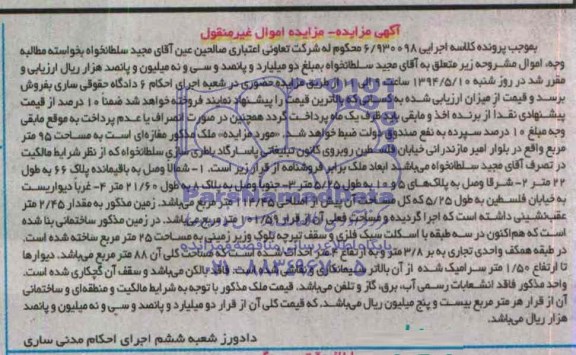 آگهی مزایده- مزایده اموال غیرمنقول
بموجب پرونده کلاسه اجرایی ۶/۹۳۰۰۹۸ محکوم له شرکت تعاونی اعتباری صالحین عین آقای مجید سلطانخواه بخواسته مطالبه
وجه، اموال مشروحه زیر متعلق به آقای مجید سلطانخواه بمبلغ دو میلیارد و پانصد و سی و نه میلیون و پانصد هزار ریال ارزیابی و
مقرر شد در روز شنبه ۱۳۹۴/۵/۱۰ ساعت از طریق مزایده حضوری در شعبه اجرای احکام ۶ دادگاه حقوقی ساری بفروش
برسد و قیمت از میزان ارزیابی شده به کسانی که بالاترین قیمت را پیشنهاد نمایند فروخته خواهد شد ضمناً ۱۰ درصد از قیمت
پیشنهادی نقداً از برنده اخذ و مابقی باید ظرف یک ماه پرداخت گردد همچنین در صورت انصراف یا عدم پرداخت به موقع مابقی
وجه مبلغ ۱۰ درصد سپرده به نفع صندوق دولت ضبط خواهد شد. مورد مزایده، ملک مذکور مغازه‌ای است به مساحت ۹۵ متر
مربع واقع در بلوار امیر مازندرانی خیابان فلسطین روبروی کانون تبلیغاتی پاسارگاد باطری سازی سلطانخواه که از نظر شرایط مالکیت
در تصرف آقای مجید سلطانخواه می‌باشد. ابعاد ملک برابر فروشنامه از قرار زیر است. ۱- شمالاً وصل به باقیمانده پلاک ۶۶ به طول
۲۲ متر ۲- شرقاً وصل به پلاک‌های ۵ و ۱۰ به طول ۵/۲۵ متر ۳- جنوباً وصل به پلاک ۸ به طول ۲۱/۶۰ متر ۴- غرباً دیواریست
به خیابان فلسطین به طول ۵/۲۵ که کل مساحت آن پیش از اصلاحی متر مربع می‌باشد. زمین مذکور به مقدار ۲/۴۵ متر
عقب‌نشینی داشته است که اجرا گردیده و مساحت فعلی آن از قرار ۱۰۱/۵۹ متر مربع می‌باشد. در زمین مذکور ساختمانی بنا شده
است که هم‌اکنون در سه طبقه با اسکلت سبک فلزی و سقف تیرچه بلوک وزیر زمینی به مساحت ۲۵ متر مربع ساخته شده است.
در طبقه همکف واحدی تجاری به بر ۳/۸ متر و به ارتفاع ۴ متر احداث شده است که مساحت کلی آن ۸۸ متر مربع می‌باشد. دیوارها
تا ارتفاع ۱/۵۰ متر سرامیک شده از آن بالاتر سیمانکاری و نقاشی شده است. فاقد بالکن می‌باشد و سقف آن گچکاری شده است.
واحد مذکور فاقد انشعابات رسمی آب، برق، گاز و تلفن می‌باشد. قیمت ملک مذکور با توجه به شرایط مالکیت و منطقه‌ای و ساختمانی
آن از قرار هر متر مربع بیست و پنج میلیون ریال می‌باشد، که قیمت کلی آن از قرار دو میلیارد و پانصد و سی و نه میلیون و پانصد
هزار ریال می‌باشد.
دادورز شعبه ششم اجرای احکام مدنی ساری